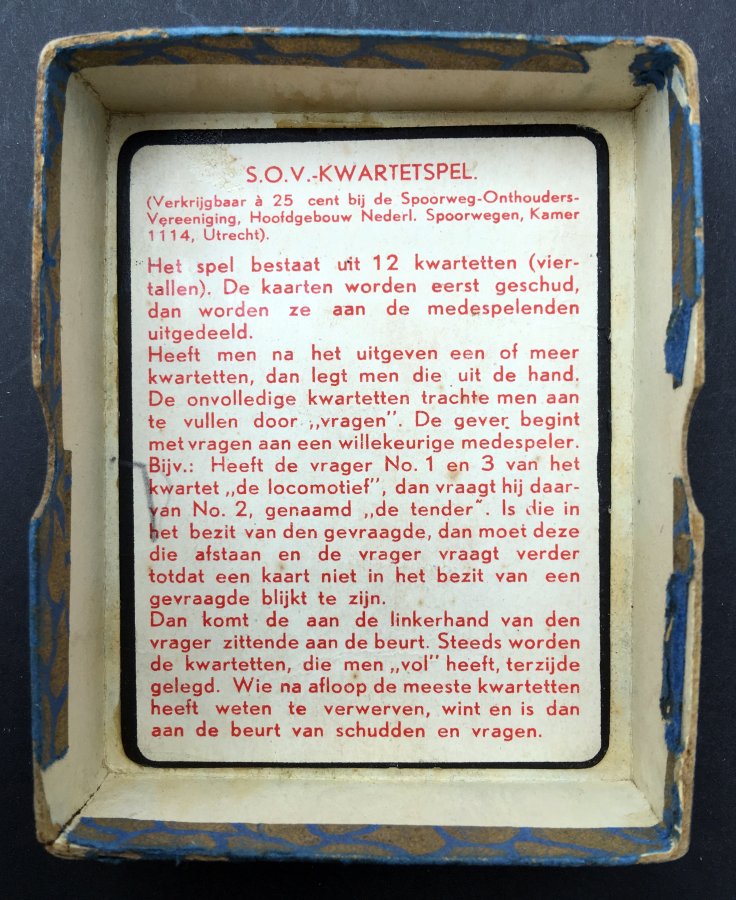 S.O.V.-KWARTETSPEL.
(Verkrijgbaar à 25 cent bij de Spoorweg-Onthouders-
Vereeniging, Hoofdgebouw Nederl. Spoorwegen, Kamer
1114, Utrecht).
Het spel bestaat uit 12 kwartetten (vier-
tallen). De kaarten worden eerst geschud,
dan worden ze aan de medespelenden
uitgedeeld.
Heeft men na het uitgeven een of meer
kwartetten, dan legt men die uit de hand.
De onvolledige kwartetten trachte men aan
te vullen door „vragen". De gever begint
met vragen aan een willekeurige medespeler.
Bijv.: Heeft de vrager No. 1 en 3 van het
kwartet „de locomotief", dan vraagt hij daar-
van No. 2, genaamd „de tender". Is die in
het bezit van den gevraagde, dan moet deze
die afstaan en de vrager vraagt verder
totdat een kaart niet in het bezit van een
gevraagde blijkt te zijn.
Dan komt de aan de linkerhand van den
vrager zittende aan de beurt. Steeds worden
de kwartetten, die men „vol" heeft, terzijde
gelegd. Wie na afloop de meeste kwartetten
heeft weten te verwerven, wint en is dan
aan de beurt van schudden en vragen.